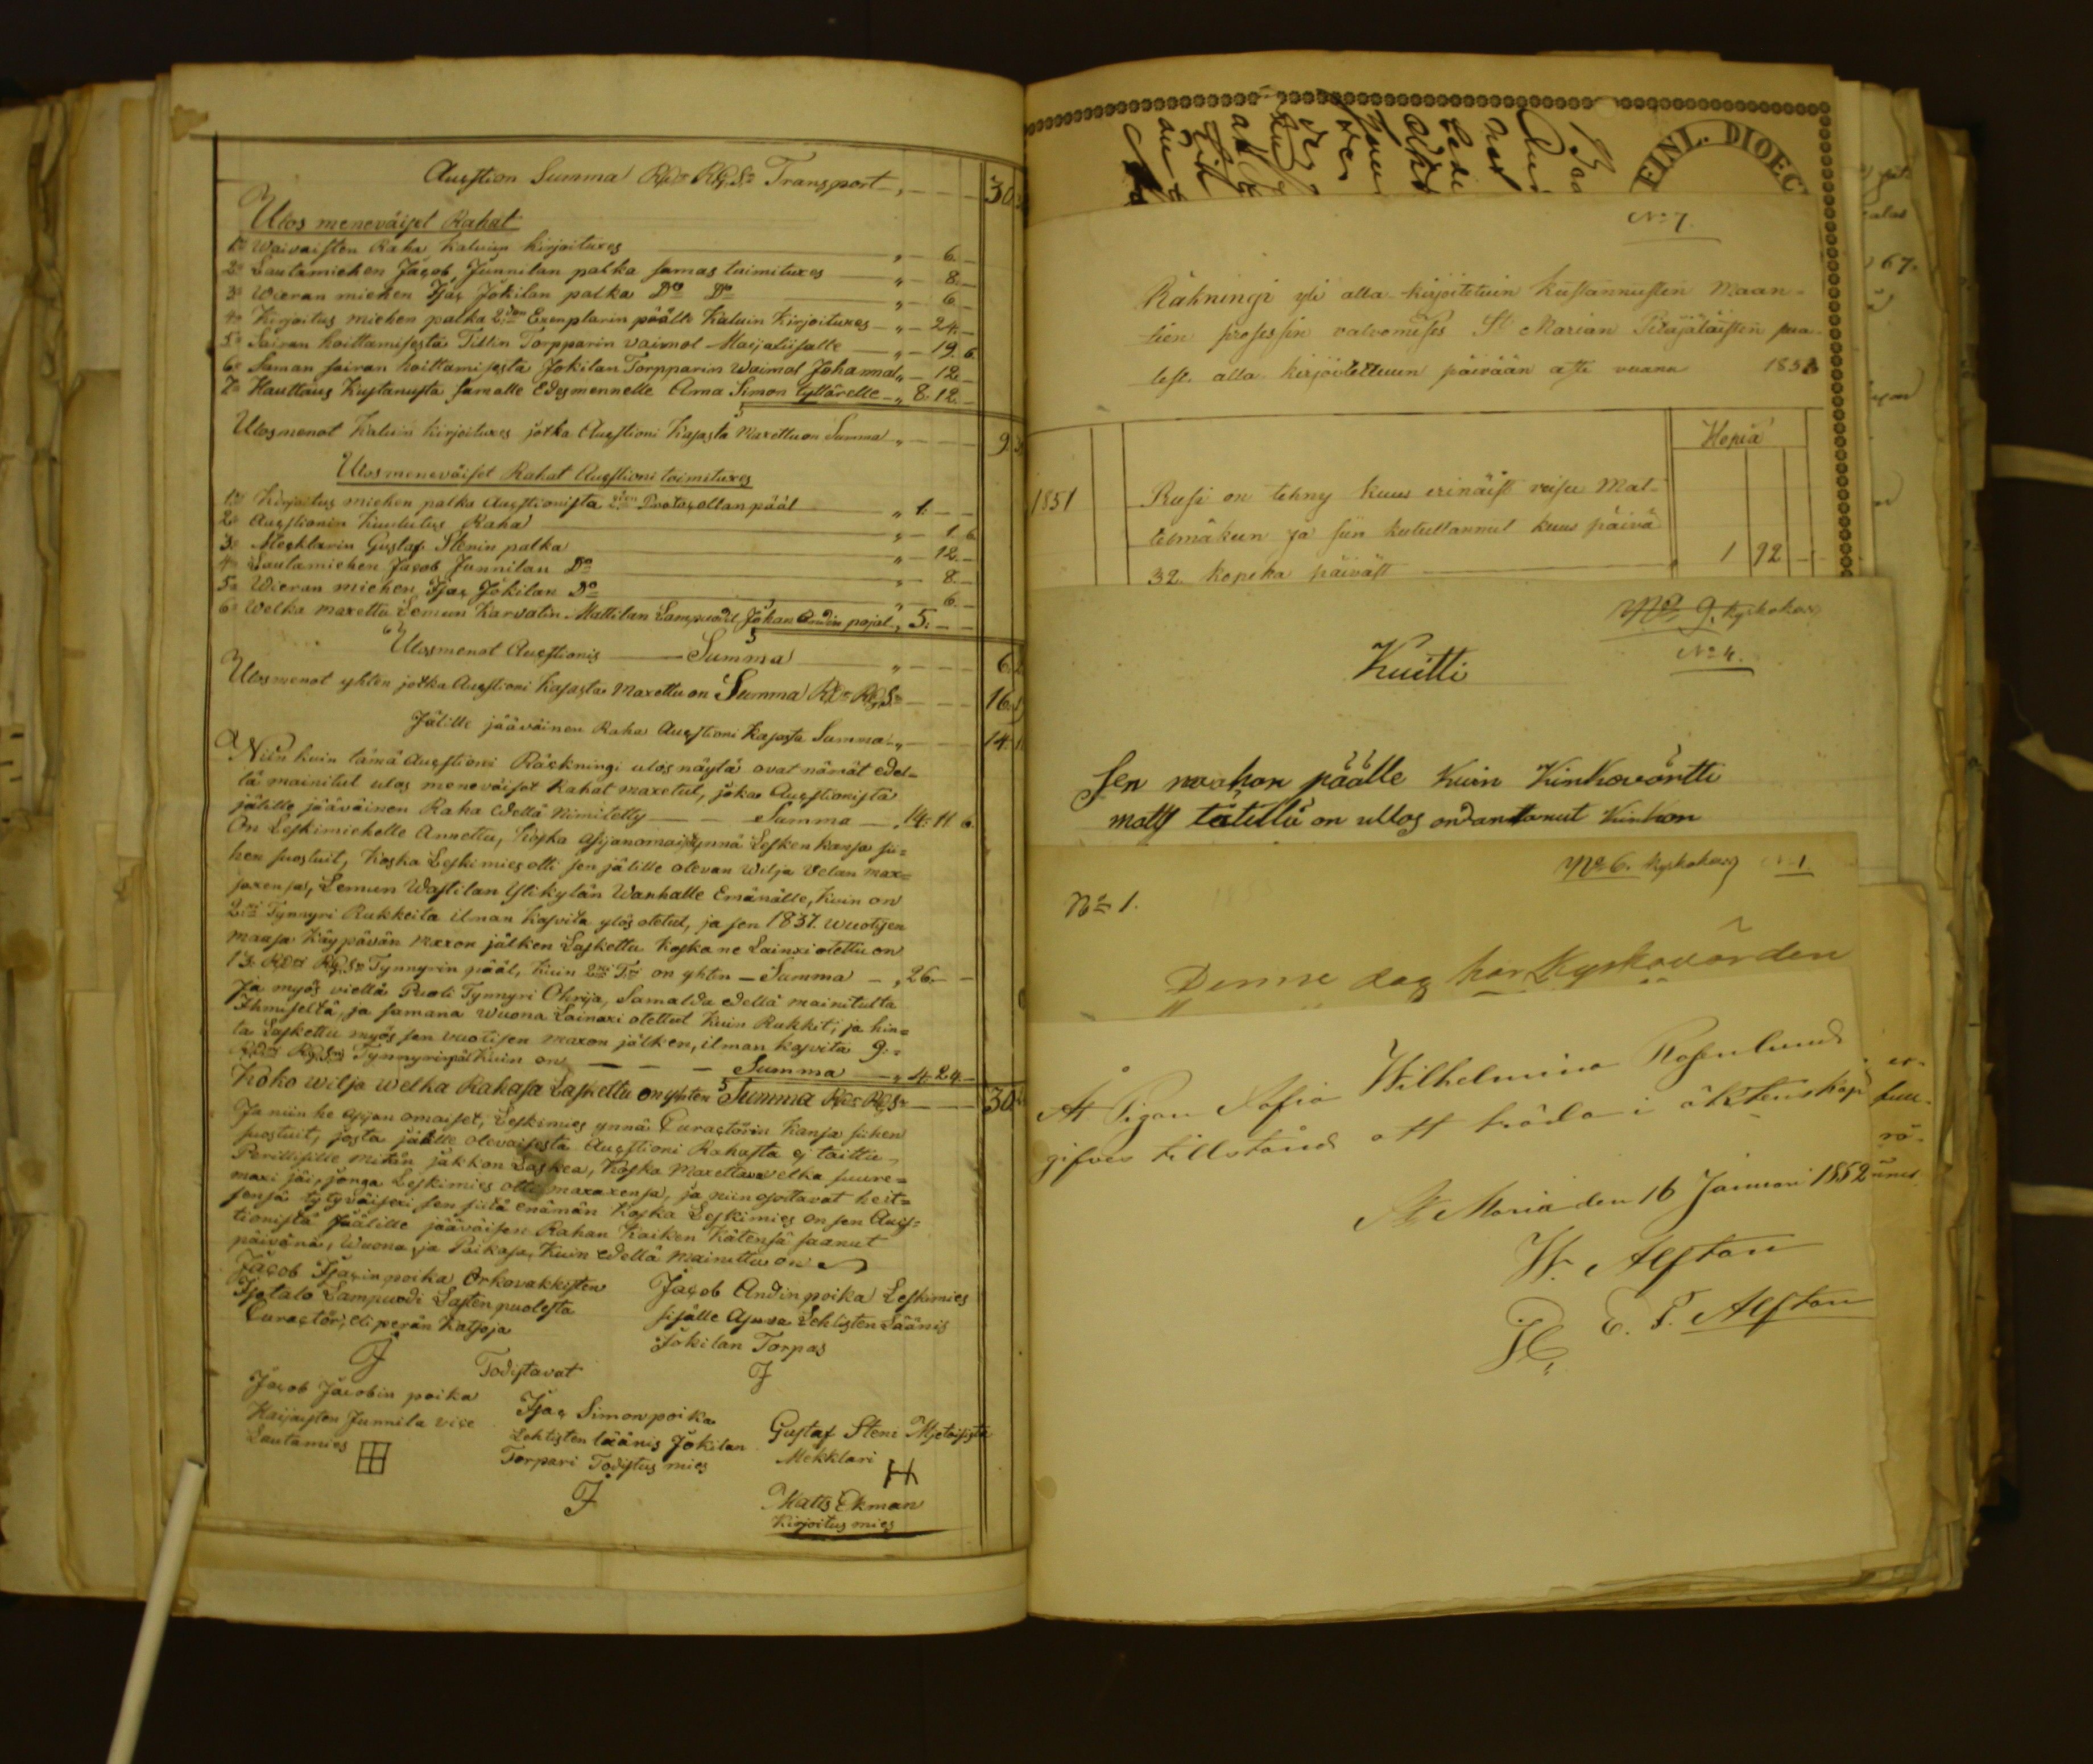 Auxtion Summa Rdr RGS: Transport „ — — 30.
Ulos meneväiset Rahat
1o Waivaisten Raha kaluin kirjoituxes „ — 6. —
2o Lautamiehen Jacob Junnilan palka samas toimituxes „ — 8. —
3o Wieran miehen Isac Jokilan palka Do Do „ — 6 —
4o Kirjoitus miehen palka 2:den Exenplarin päälle Kaluin Kirjoituxes „ — 24. —
5o Sairan hoittamisesta Tillin Torpparin vaimol Maijaliisalle „ — 19. 6.
6o Saman sairan hoittamisesta Jokilan Torpparin Waimol Johannal „ — 12. —
7o Hauttaus Kustanusta samalle Edesmennelle Anna Simon tyttärelle „ 8. 12. —
Ulosmenot Kaluin kirjoituxes jotka Auxtioni Kasasta Maxettu on Summa „ — — 9.
Ulosmeneväiset Rahat Auxtioni toimituxes
1o Kirjoitus miehen palka Auxtionista Protocollan pääl „ 1. — —
2o Auxtionin Kuulutus Raha „ — 1. 6
3o Mecklarin Gustaf Stenin palka „ 12. —
4o Lautamiehen Jacob Junnilan Do „ 8. —
5o Wieran miehen Isac Jokilan Do „ 6. —
6o Welka maxettu Lemun Karvatin Mattilan Lampuodil Johan Andin pojal „ 5. — —
Ulosmenot Auxtionis — Summa „ — — 6.
Ulosmenot yhten jotka Auxtioni Kasasta Maxettu on Summa Rdr RGS: — — 16.
Jälille jääväinen Raha Auxtioni Kasasta Summa „ — — 14.
Niin kuin tämä Auxtioni Räckningi ulos näytä ovat nämät edel=
lä mainitut ulos meneväiset Rahat maxetut, joka Auxtionista
jälille jääväinen Raha Edellä Nimitetty — — Summa — „ 14. 11 6.
On Leskimiehelle Annettu, koska Asjanomaiset ynnä Lesken kansa sii=
hen suostuit, Koska Leskimies otti sen jälille olevan Wilja Velan max=
saxensa, Lemun Wastilan Ylikylän Wanhalle Emänälle, Kuin on
2:xi Tynnyri Rukkeita ilman kasvita ylös otetut, ja sen 1837. wuotisen
maasa Käypävän maxon jälken Laskettu Koska ne Lainaxi otettu on
13. Rdri RGS: Tynnyrin pääl, Kuin 2:xi T:ri on yhten — Summa — „ 26. — —
Ja myös viellä Puoli Tynnyri Ohrija, Samalda edellä mainitulta
Ihmiseltä, ja samana Wuona Lainaxi otettut Kuin Rukkit; ja hin=
ta Laskettu myös sen vuotisen maxon jälken, ilman kasvita 9:
Rdri RGS: Tynnyrinpäl kuin on — — — Summa — „ 4. 24. —
Koko wilja welka Rahasa Laskettu on yhten Summa Rdr RGS: — — 30.
Ja niin he asjan omaiset, Leskimies ynnä Curactörin kansa siihen
suostuit, josta jälille olevaisesta Auxtioni Rahasta ej taittu
Perillisille mitän jakkon Laskea, Koska Maxettava velka suure=
maxi jäi, jonga Leskimies otti maxaxensa, ja niin ojottavat heit=
sensä tytyväisexi sen siitä enämän Koska Leskimies on sen Aux=
tionista jäälille jääväisen Rahan Kaiken Kätensä saanut
päivänä, Wuona ja Paikasa, Kuin edellä Mainittu on
Jacob Isacin poika Orkovakkisten
Isotalo Lampuodi Lasten puolesta
Curactöri, eli perän Katsoja
Jacob Andin poika Leskimies
sisälle Asuva Lehtisten Läänis
Jokilan Torpas
Todistavat
Jacob Jacobin poika
Kaijaisten Junnila vice
Lautamies
Isac Simon poika
Lehtisten läänis Jokilan
Torpari Todistus mies
Gustaf Sten
Mekklari
Matts Ekman
Kirjoitus mies
FINL. DIOEC
No 7.
Räkningi yli alla kirjoitetuin kustannusten Maan-
tien prosessin valvomises St Marian Pitäjäläisten puo-
lest. alla kirjoitettuun päivään asti vuana 1851
Kopia
1851
Rusi on tehny kuus erinäist reisu Mat-
telmäkeen ja siin kuluttannut kuus päivä
32. kopeka päiväst — 1 92 —
No 9. kyskokous
No 4.
Kuitti
Sen waahan päälle Kuin Kinkovärtti
matts on ullos andantanut Kinkon
No 6. kyskokous No 1.
No 1.
Denne dag har Kyrkovärden
At Pigan Sofia Wilhelmina Rosenlund
gifves tillstånd att träda i äktenskap
St Maria den 16 Januari 1852
W. Alftan
E. F. Alftan